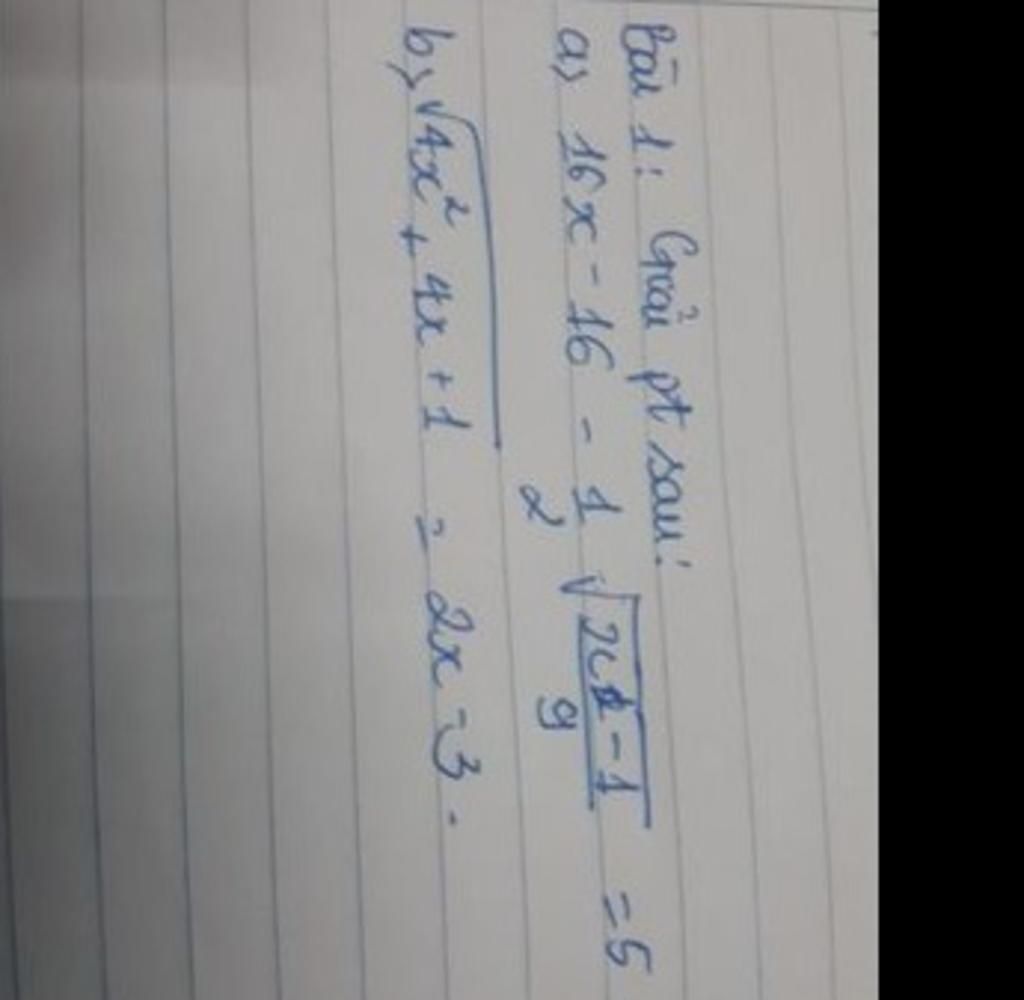 Bài 1: Giải pt sau:
a) 16x - 16 - 1/2 √((x - 1)/9) = 5
b) √(4x² + 4x + 1) = 2x - 3.